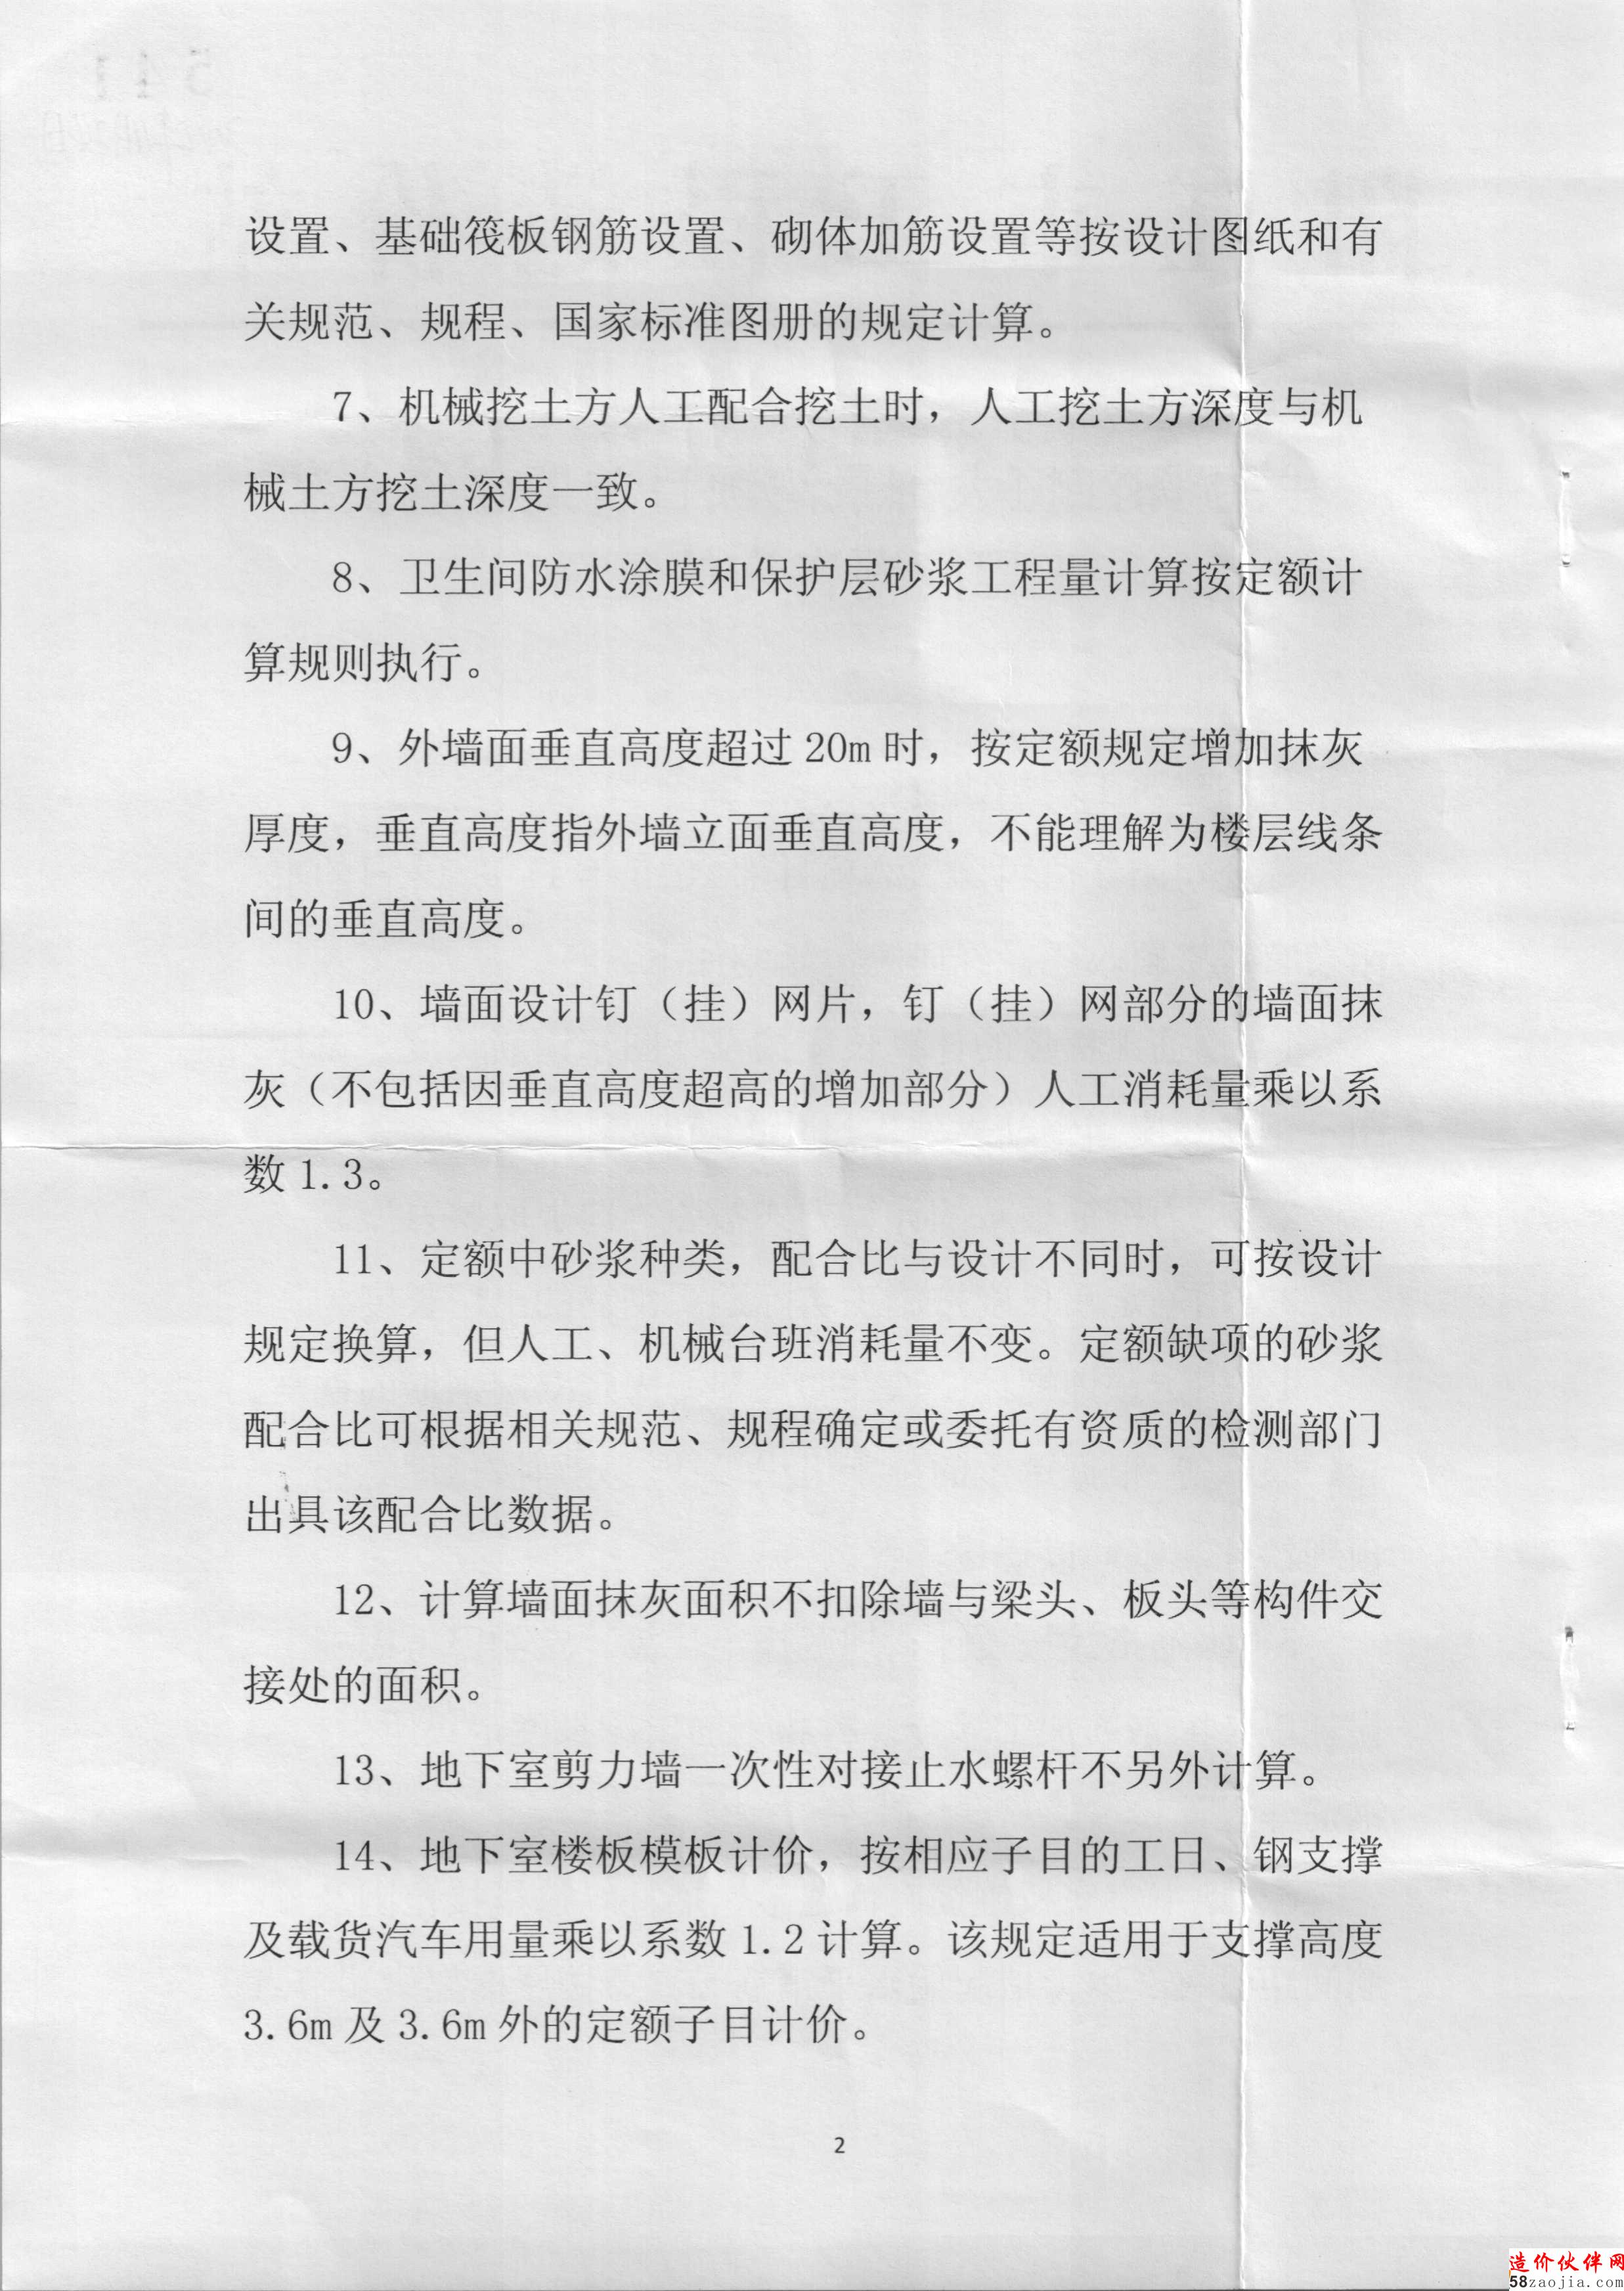 设置、基础筏板钢筋设置、砌体加筋设置等按设计图纸和有
关规范、规程、国家标准图册的规定计算。
7、机械挖土方人工配合挖土时，人工挖土方深度与机
械土方挖土深度一致。
8、卫生间防水涂膜和保护层砂浆工程量计算按定额计
算规则执行。
9、外墙面垂直高度超过20m时，按定额规定增加抹灰
厚度，垂直高度指外墙立面垂直高度，不能理解为楼层线条
间的垂直高度。
10、墙面设计钉（挂）网片，钉（挂）网部分的墙面抹
灰（不包括因垂直高度超高的增加部分）人工消耗量乘以系
数1.3。
11、定额中砂浆种类，配合比与设计不同时，可按设计
规定换算，但人工、机械台班消耗量不变。定额缺项的砂浆
配合比可根据相关规范、规程确定或委托有资质的检测部门
出具该配合比数据。
12、计算墙面抹灰面积不扣除墙与梁头、板头等构件交
接处的面积。
13、地下室剪力墙一次性对接止水螺杆不另外计算。
14、地下室楼板模板计价，按相应子目的工日、钢支撑
及载货汽车用量乘以系数1.2计算。该规定适用于支撑高度
3.6m及3.6m外的定额子目计价。
2
造价伙伴网
58zaojia.com